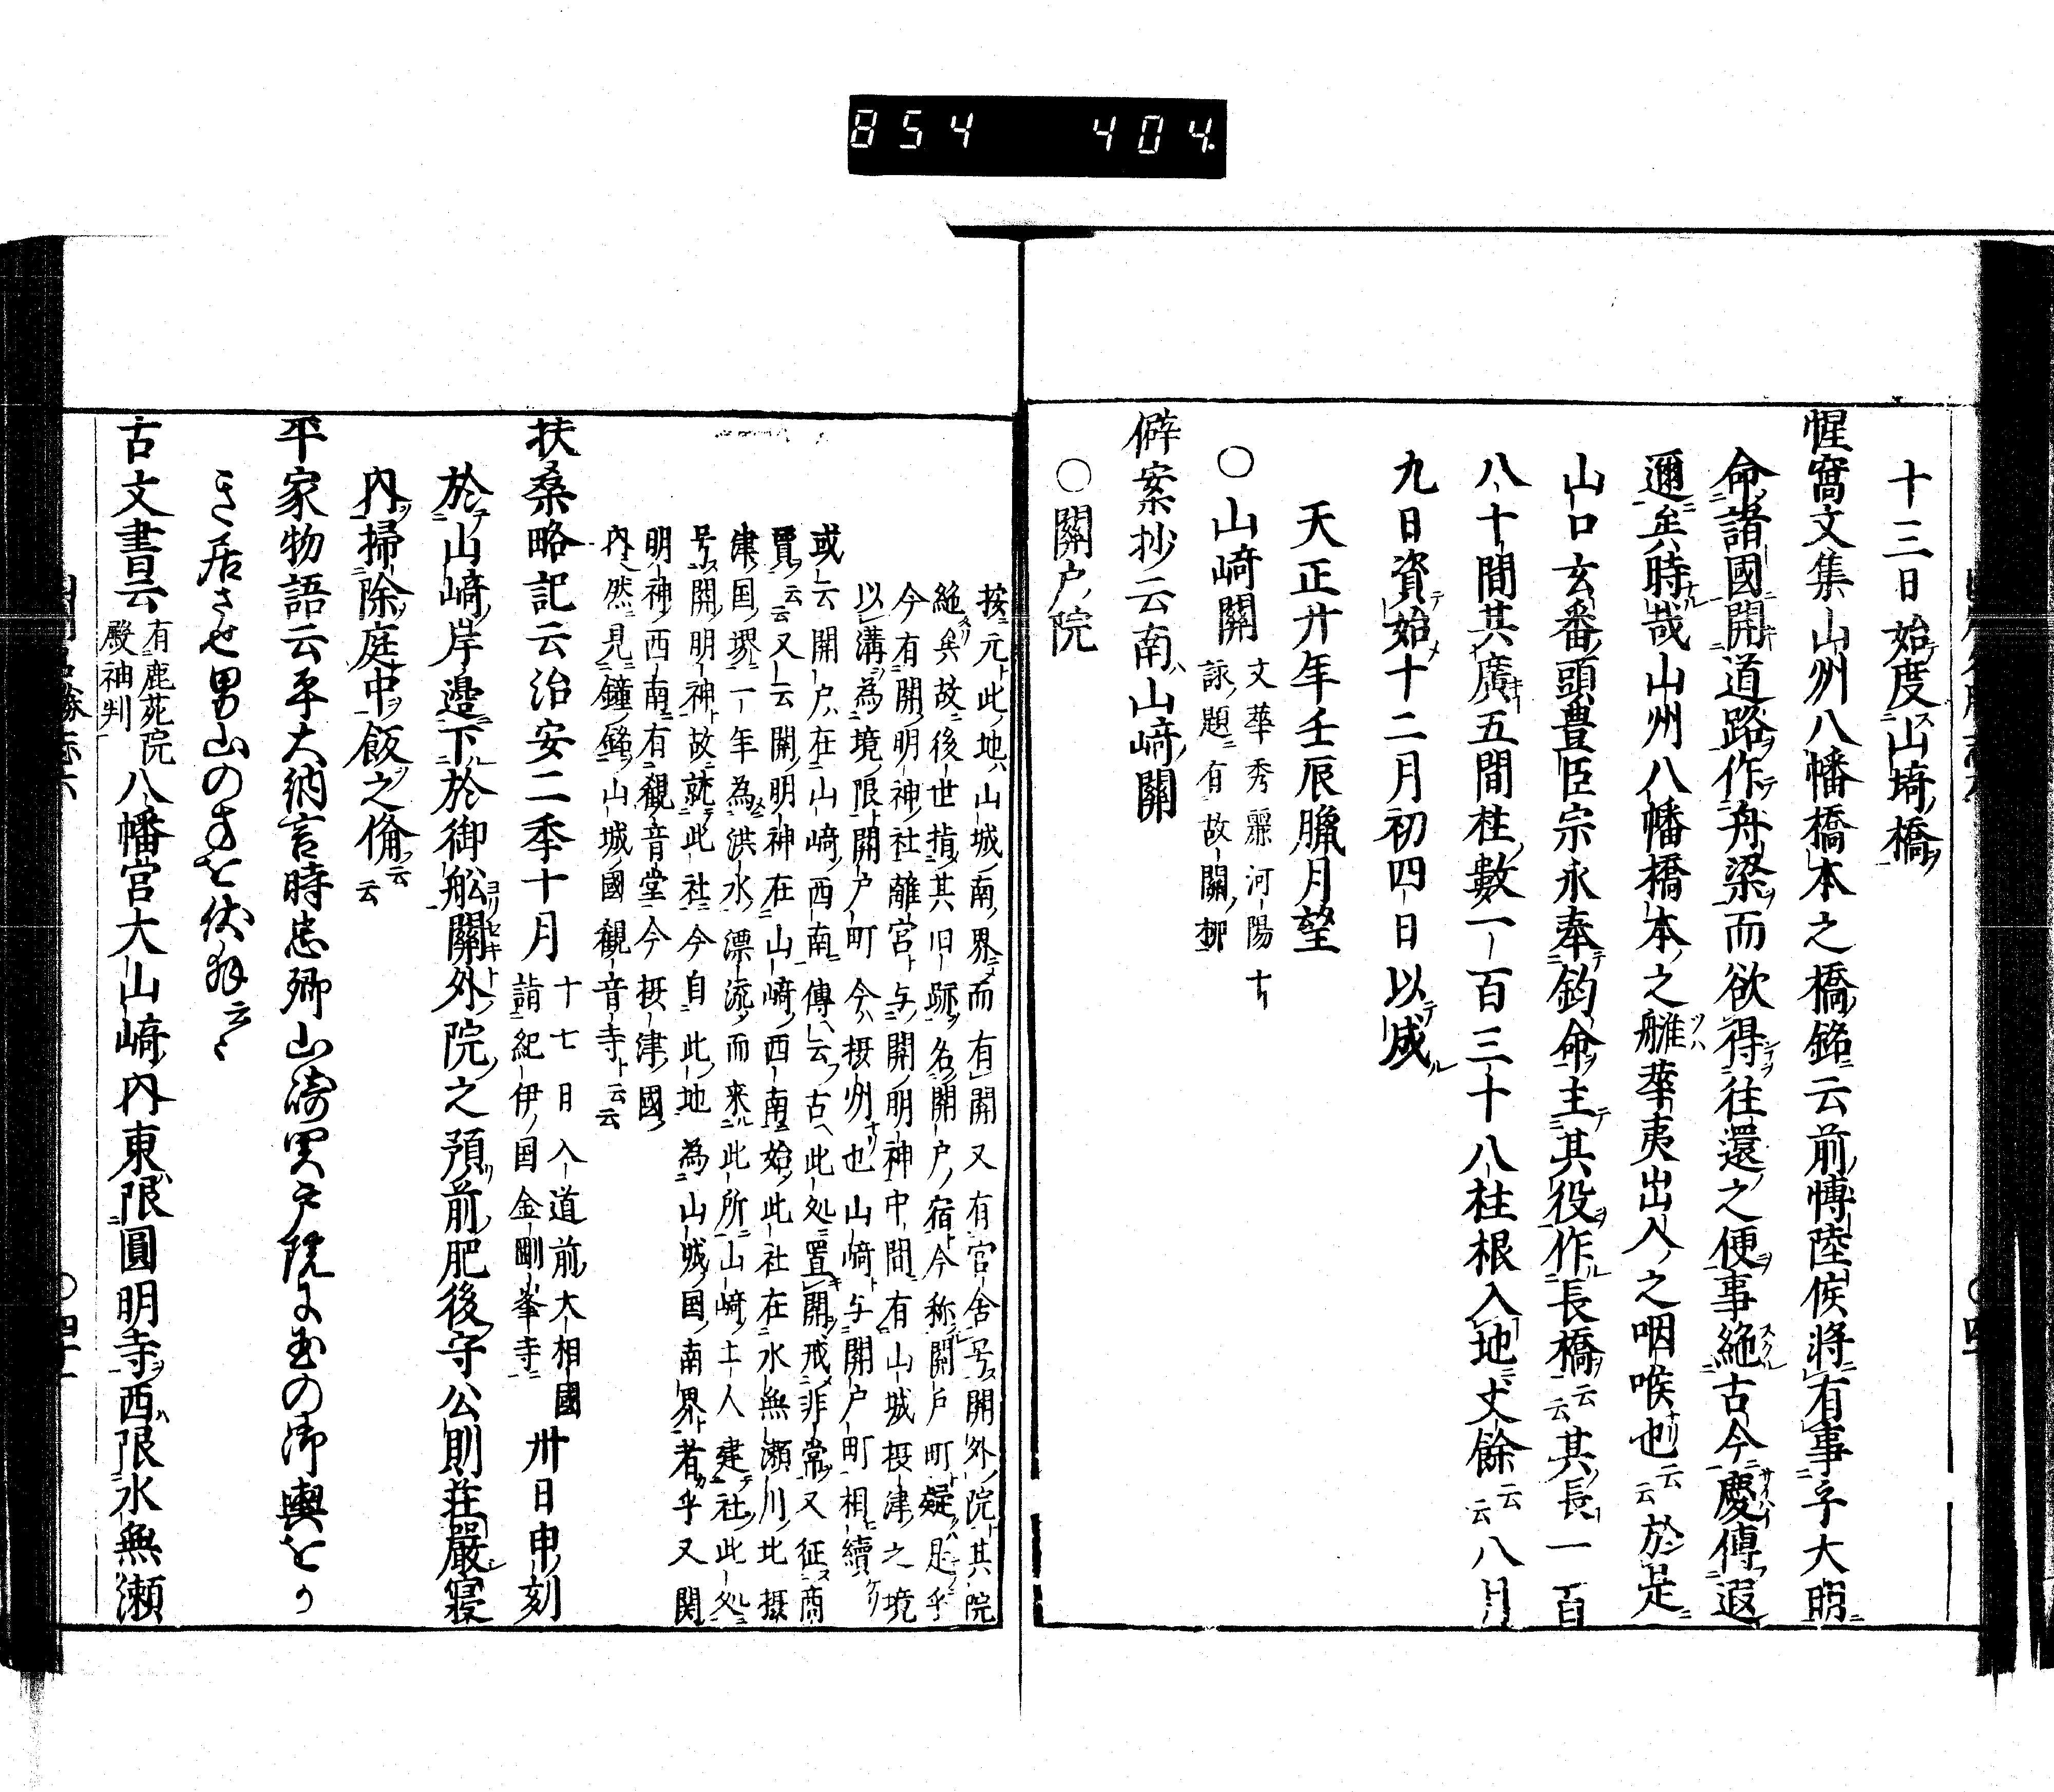 854 404.
十三日始度山埼橋
惺窩文集山州八幡橋本之橋銘云前愽陸侯將有事乎大明
命諸國開道路作舟梁而欲得往還之便事絶古今慶傳遐
邇矣時哉山州八幡橋本之離華夷出入之咽喉也云云於是
山口玄番頭豊臣宗永奉鈞命主其役作長橋云云其長一百
八十間其廣五間柱數一百三十八柱根入地丈餘云云八月
九日資始十二月初四日以成
天正廿年壬辰臘月望
○山崎關 文華秀麗河陽十
詠題有故關柳
僻案抄云南山崎關
○關戸院
按元此地山城南界而有關又有宮舎号關外院其院
絶矣故後世指其旧跡名關戸宿今称關戸町疑是乎
今有關明神社離宮与關明神中間有山城摂津之境
以溝為境限關戸町今摂州也山崎与關戸町相續
或云關戸在山崎西南傳云古此処置關戒非常又征商
賈云云又云關明神在山崎西南始此社在水無瀬川北摂
津国堺一年為洪水漂流而来此所山崎土人建社此処
号關明神故就此社今自此地為山城国南界者乎又関
明神西南有観音堂今摂津國
内然見鐘銘山城國観音寺云云
扶桑略記云治安二季十月 十七日入道前大相國
請紀伊国金剛峯寺 卅日申刻
於山崎岸邉下於御舩關外院之預前肥後守公則荘嚴寝
内掃除庭中飯之俻云云
平家物語云平大納言時忠卿山崎関戸院に玉の御輿をか
きすゑさせ男山の方を伏拜云々
古文書云 有鹿苑院
殿袖判 八幡宮大山崎内東限圓明寺西限水無瀬